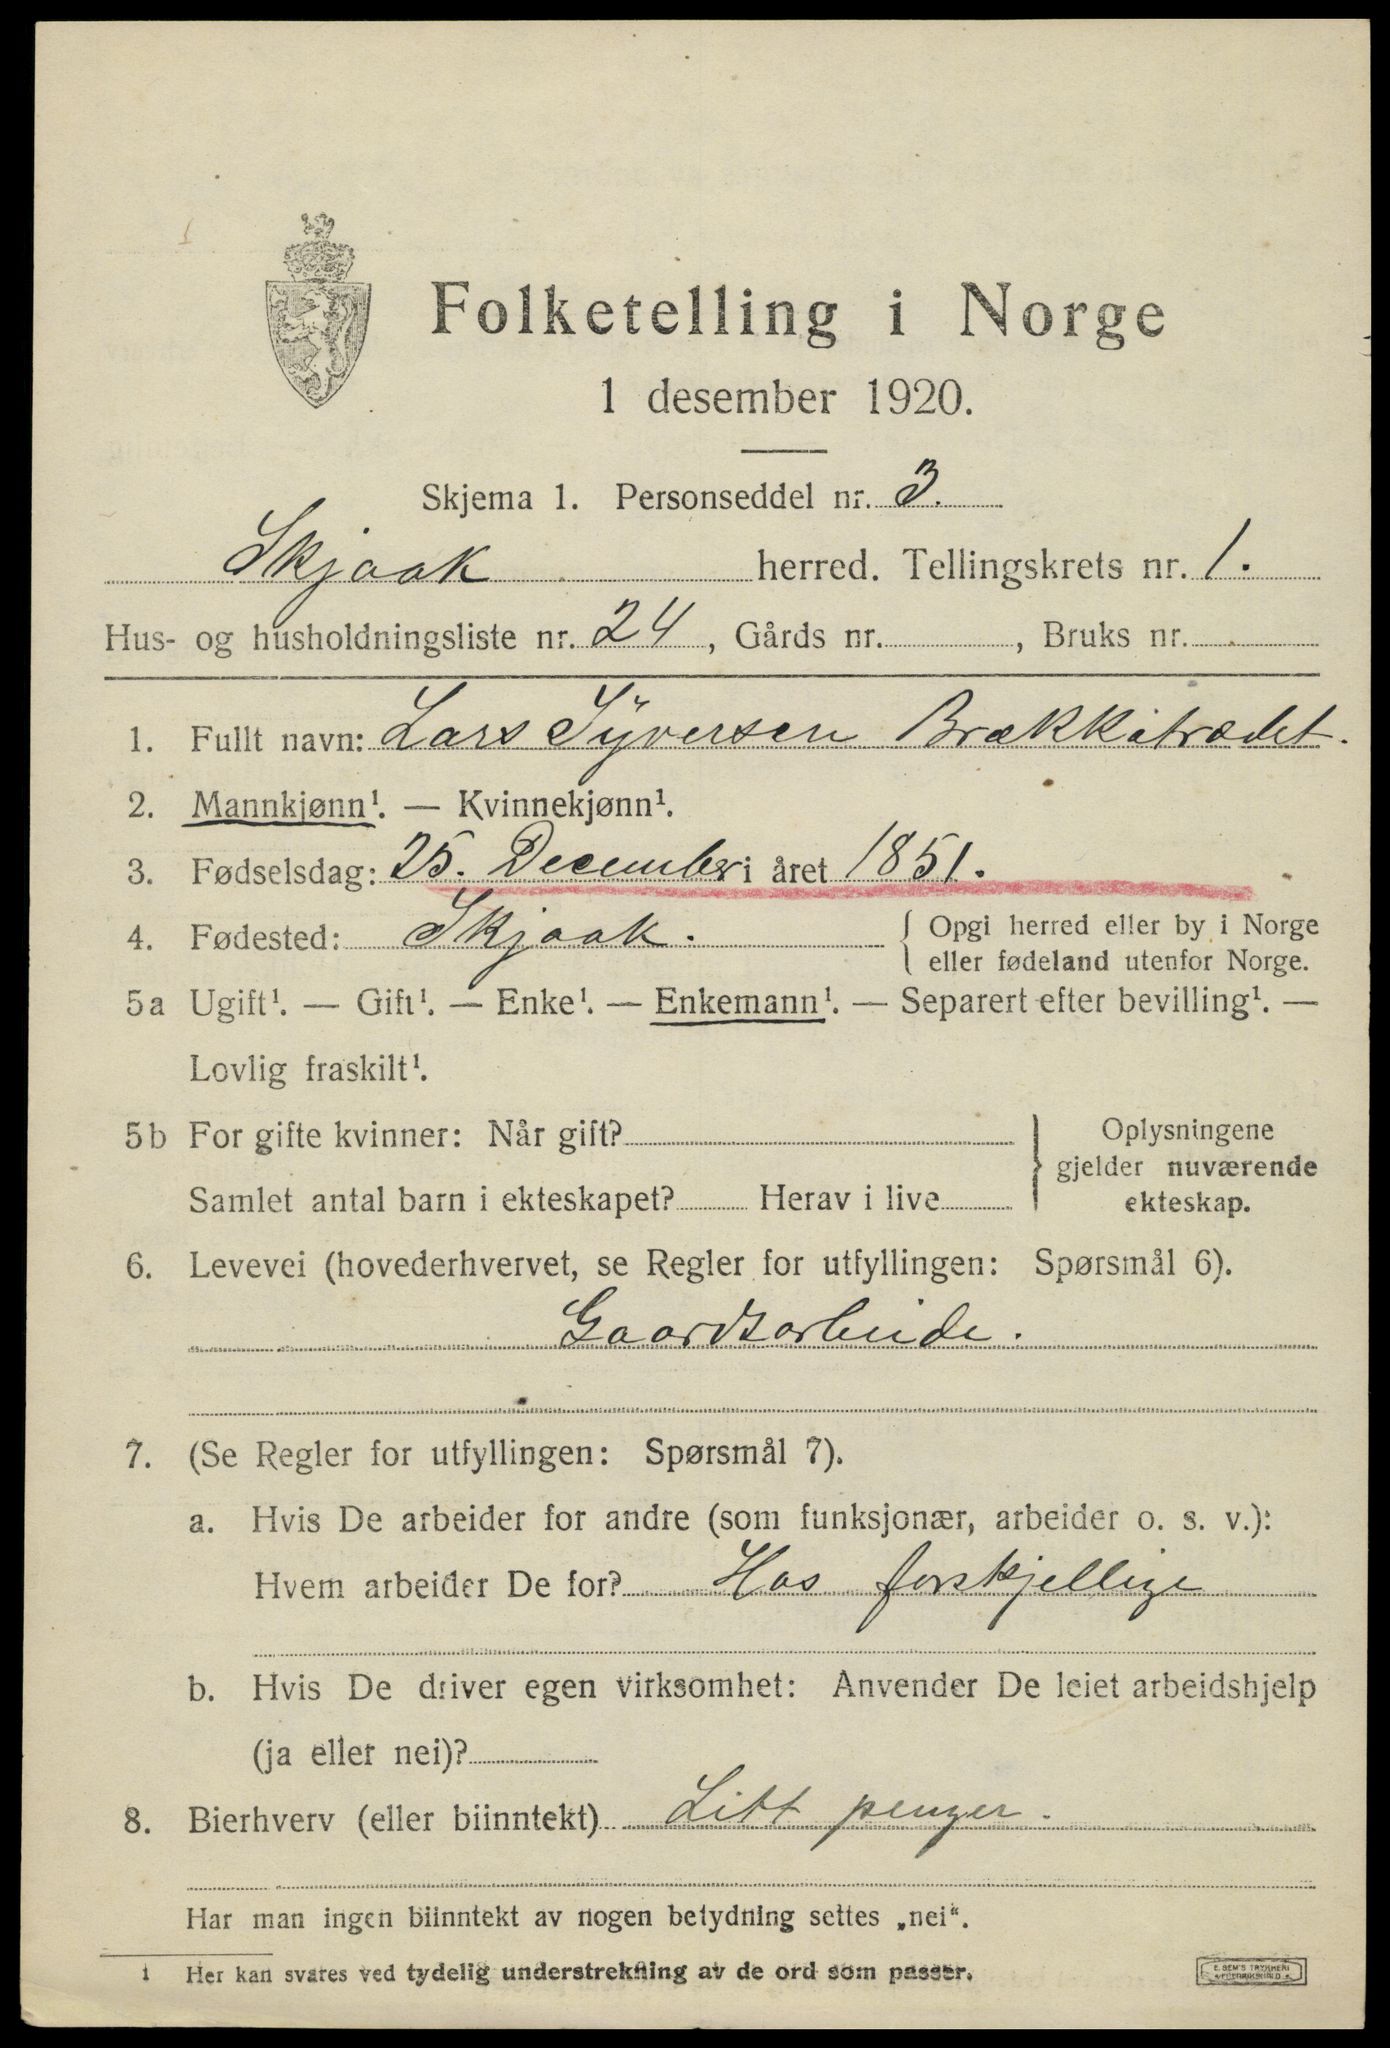 Folketelling i Norge
1 desember 1920.
Skjema 1. Personseddel nr. 3.
Skjaak herred. Tellingskrets nr. 1.
Hus- og husholdningsliste nr. 24, Gårds nr. , Bruks nr.
1. Fullt navn: Lars Syversen
2. Mannkjønn¹. — Kvinnekjønn¹.
3. Fødselsdag: 25. December i året 1851.
4. Fødested: Skjaak. { Opgi herred eller by i Norge
eller fødeland utenfor Norge.
5a Ugift¹. — Gift¹. — Enke¹. — Enkemann¹. — Separert efter bevilling¹. —
Lovlig fraskilt¹.
5b For gifte kvinner: Når gift? } Oplysningene
gjelder nuværende
Samlet antal barn i ekteskapet? Herav i live ekteskap.
6. Levevei (hovederhvervet, se Regler for utfyllingen: Spørsmål 6).
Gaardsarbeide.
7. (Se Regler for utfyllingen: Spørsmål 7).
a. Hvis De arbeider for andre (som funksjonær, arbeider o. s. v.):
Hvem arbeider De for? Hos forskjellige
b. Hvis De driver egen virksomhet: Anvender De leiet arbeidshjelp
(ja eller nei)?
8. Bierhverv (eller biinntekt) Litt penger.
Har man ingen biinntekt av nogen betydning settes „nei“.
1 Her kan svares ved tydelig understrekning av de ord som passer.